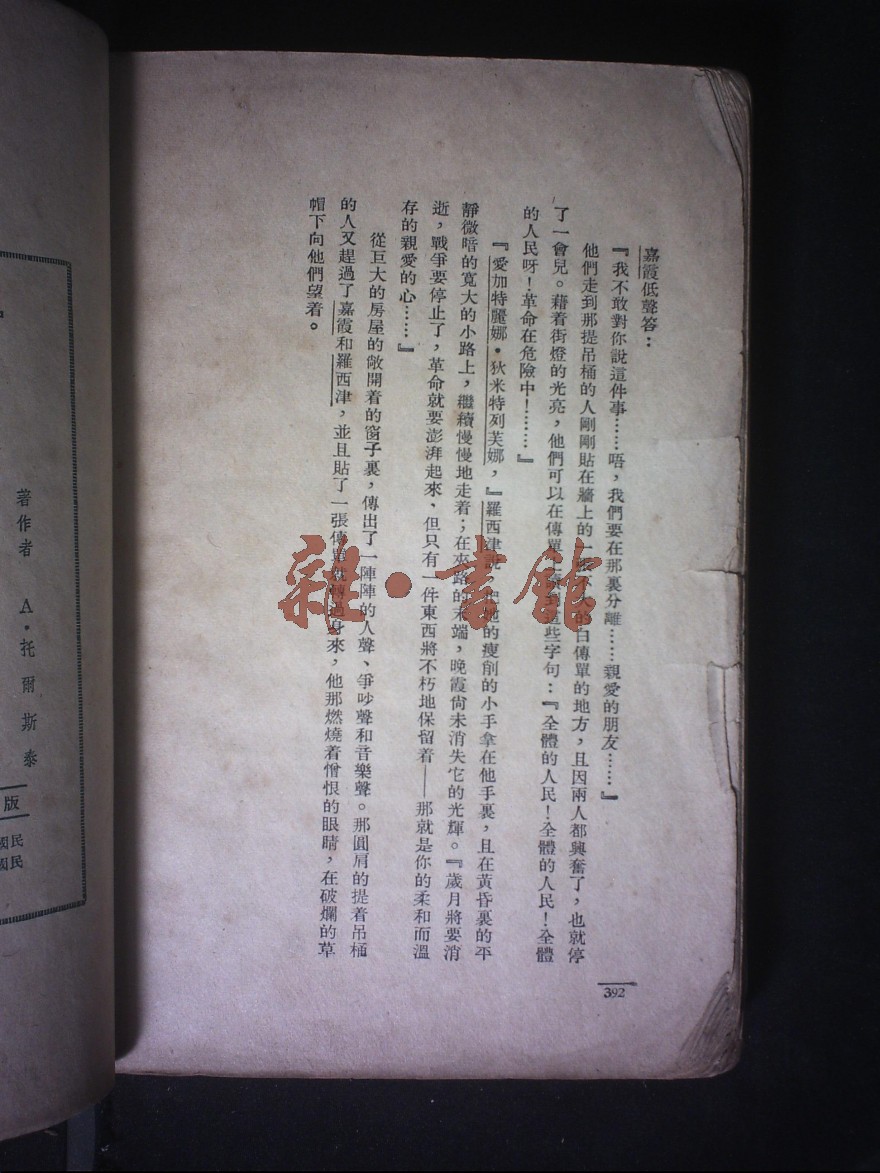 嘉霞低聲答：
『我不敢對你說這件事……唔，我們要在那裏分離……親愛的朋友……』
他們走到那提吊桶的人剛剛貼在牆上的一張不大的白傳單的地方，且因兩人都興奮了，也就停
了一會兒。藉着街燈的光亮，他們可以在傳單上讀到這些字句：『全體的人民！全體的人民！全體
的人民呀！革命在危險中！……』
『愛加特麗娜·狄米特列芙娜，』羅西津說，把她的瘦削的小手拿在他手裏，且在黃昏裏的平
靜微暗的寬大的小路上，繼續慢慢地走着；在夾路的末端，晚霞尚未消失它的光輝。『歲月將要消
逝，戰爭要停止了，革命就要澎湃起來、但只有一件東西將不朽地保留着——那就是你的柔和而溫
存的親愛的心……』
從巨大的房屋的敞開着的窗子裏，傳出了一陣陣的人聲、爭吵聲和音樂聲。那圓肩的提着吊桶
的人又趕過了嘉霞和羅西津，並且貼了一張傳單就轉過身來，他那燃燒着憎恨的眼睛，在破爛的草
帽下向他們望着。
392
雜·書館
著作者 A·托爾斯泰
版
國民
國民